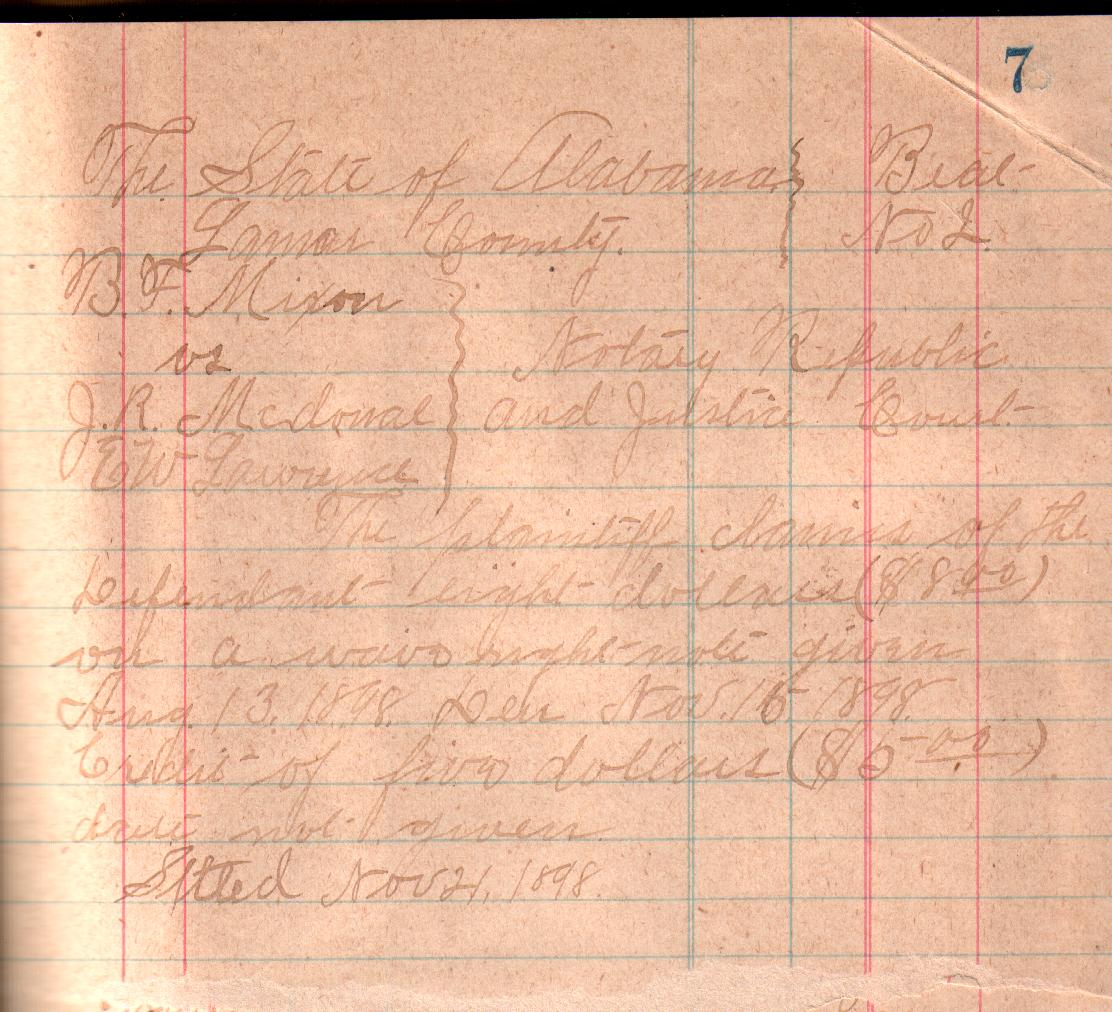 7
The State of Alabama } Beat
Lamar County. } No 2
B. F. Mixon
vs } Notary Republic
J. R. Mcdonal } and Justice Court
E W Lawrence
The plaintiff claims of the
Defendant eight dollars ($8 00)
on a wave right note given
Aug. 13. 1898. Due Nov. 15 1898.
Credit of five dollars ($5 00)
date not given
Sttled Nov 21, 1898